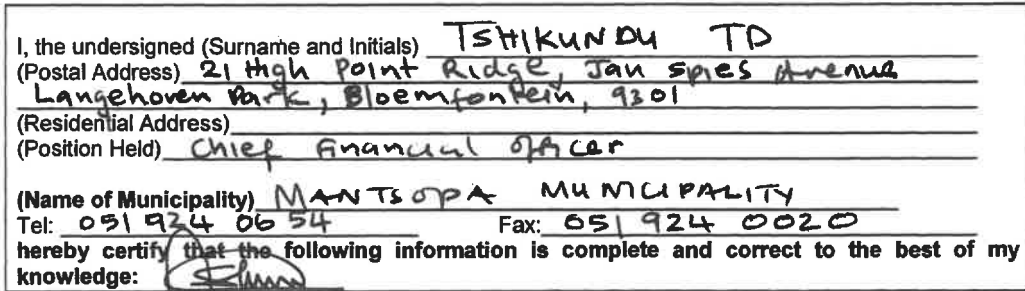 I, the undersigned (Surname and Initials) TSHIKUNDU TD
(Postal Address) 21 High Point Ridge, Jan Spies Avenue
Langehoven Park, Bloemfontein, 9301
(Residential Address)
(Position Held) Chief Financial Officer
(Name of Municipality) MANTSOPA MUNICIPALITY
Tel: 051 924 0654 Fax: 051 924 0020
hereby certify that the following information is complete and correct to the best of my
knowledge: